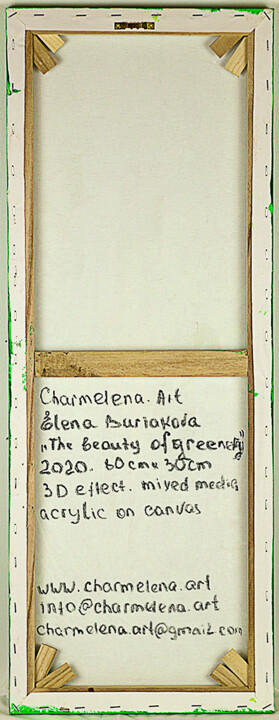 Charmelena. Art
Elena Buriakova
„The beauty of greenery"
2020. 60cmx30cm
3D effect. mixed media,
acrylic on canvas
www.charmelena.art
info@charmelena.art
charmelena.art@gmail.com